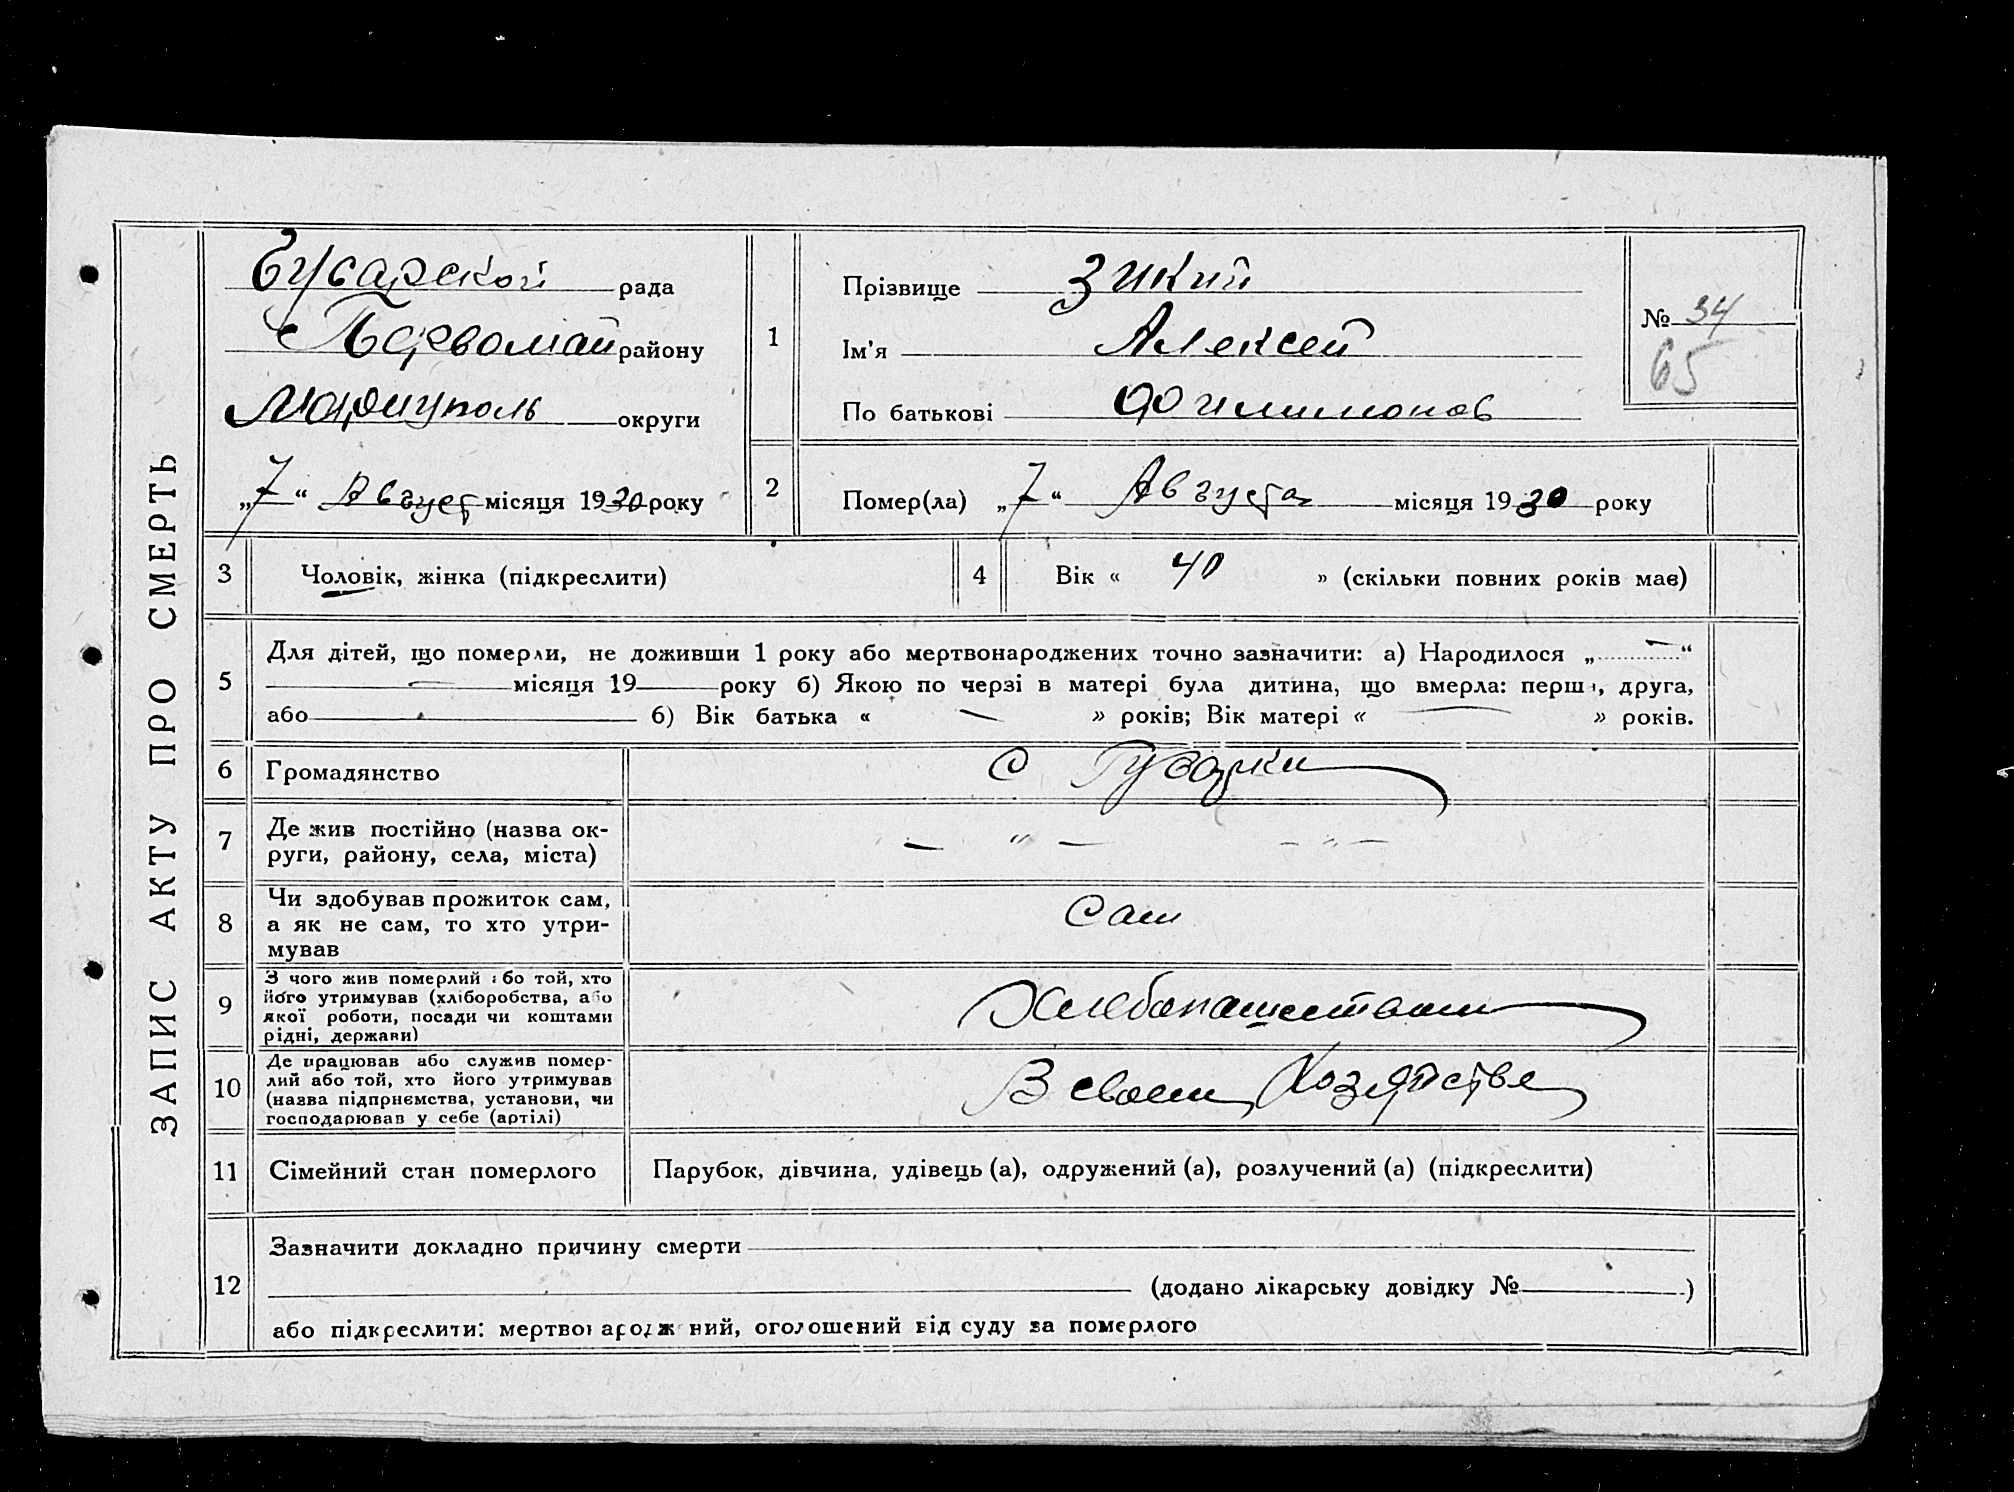 ЗАПИС АКТУ ПРО СМЕРТЬ
Гусарской рада
с Первомай району
Мариуполь округи
„7“ Август місяця 1930 року
1
Прізвище Зикий
Ім'я Алексей
По батькові Филимонов
№ 34
65
2
Помер(ла) „7“ Августа місяця 1930 року
3
Чоловік, жінка (підкреслити)
4
Вік « 40 » (скільки повних років має)
5
Для дітей, що померли, не доживши 1 року або мертвонароджених точно зазначити: а) Народилося „—“
— місяця 19 року б) Якою по черзі в матері була дитина, що вмерла: перша, друга,
або б) Вік батька « — » років; Вік матері « — » років.
6
Громадянство
С Гусарки
7
Де жив постійно (назва ок-
руги, району, села, міста)
— " — — " —
8
Чи здобував прожиток сам,
а як не сам, то хто утри-
мував
Сам
9
З чого жив померлий або той, хто
його утримував (хліборобства, або
якої роботи, посади чи коштами
рідні, держави)
Хлебопашеством
10
Де працював або служив помер-
лий або той, хто його утримував
(назва підприємства, установи, чи
господарював у себе (артілі)
В своем Хозяйстве
11
Сімейний стан померлого
Парубок, дівчина, удівець (а), одружений (а), розлучений (а) (підкреслити)
12
Зазначити докладно причину смерти
(додано лікарську довідку № )
або підкреслити: мертвонароджений, оголошений від суду за померлого